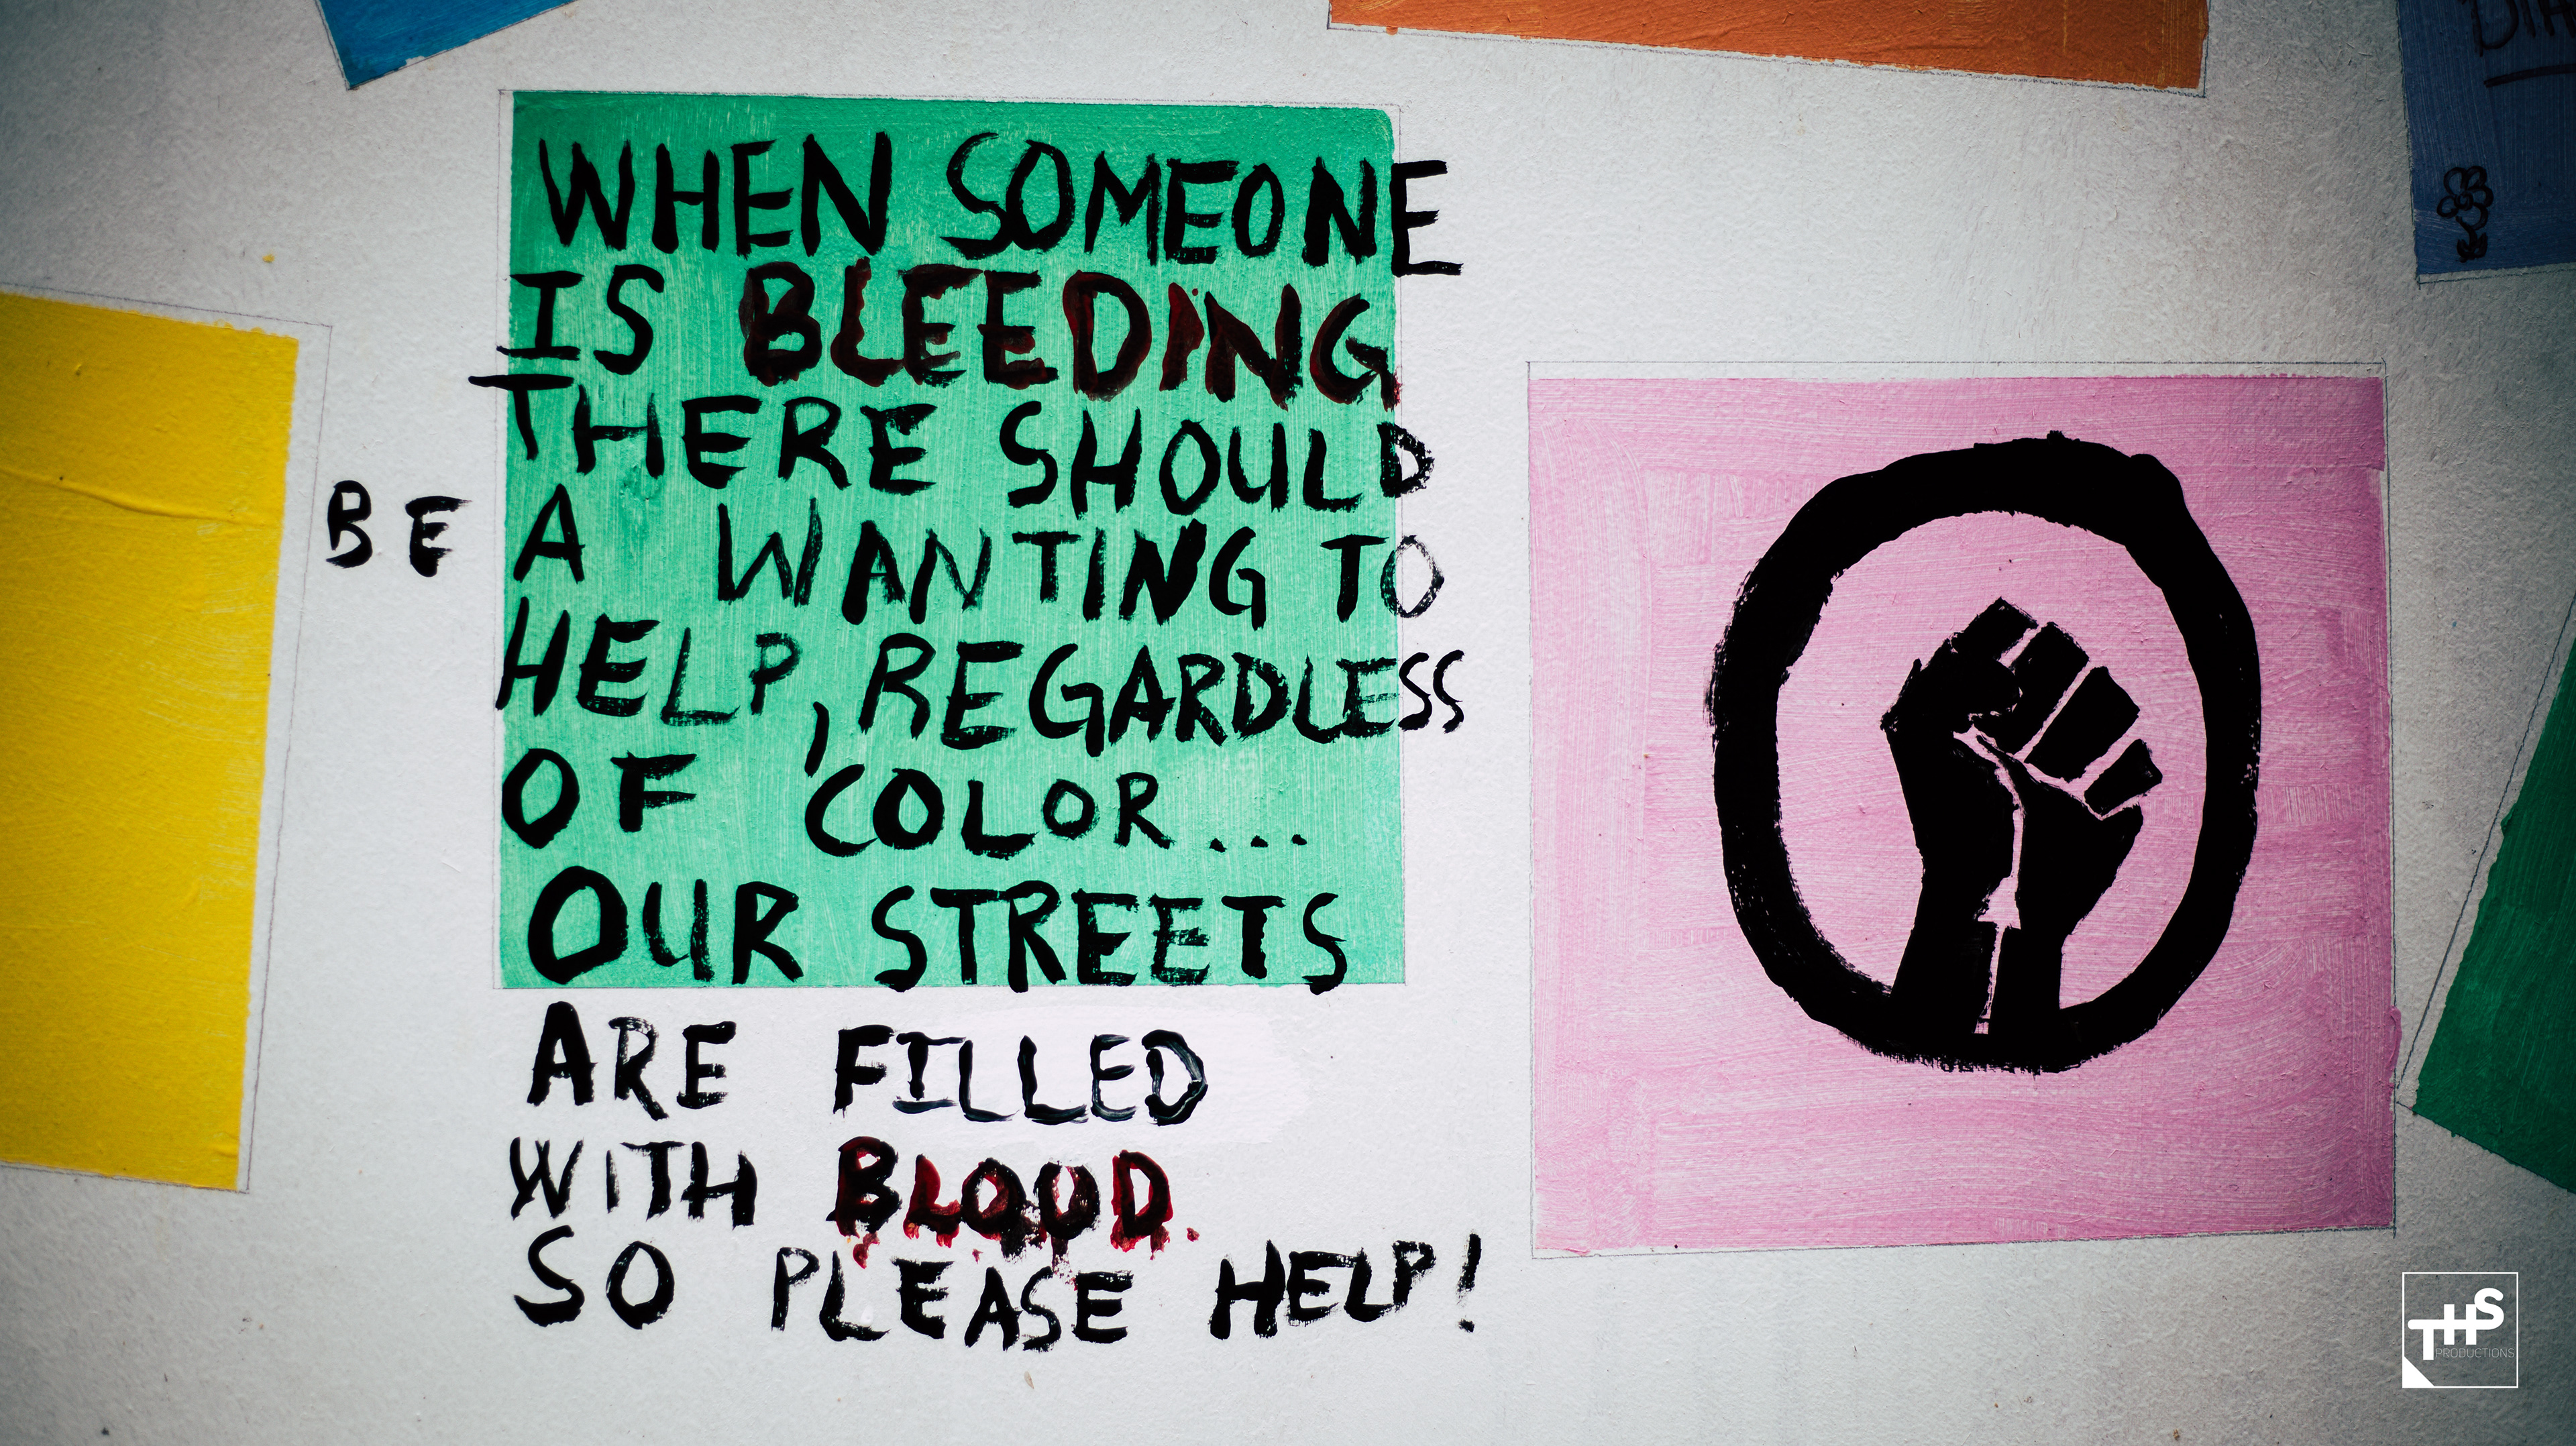 WHEN SOMEONE
IS BLEEDING
THERE SHOULD
BE A WANTING TO
HELP, REGARDLESS
OF COLOR...
OUR STREETS
ARE FILLED
WITH BLOOD.
SO PLEASE HELP!
THS
PRODUCTIONS